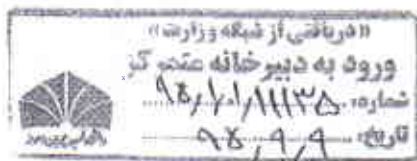 «دریافتی از شبکه وزارت»
ورود به دبیرخانه متمرکز
شماره: ۹۴/۱۰۱/۱۱۱۳۵
تاریخ: ۹۴،۹،۹